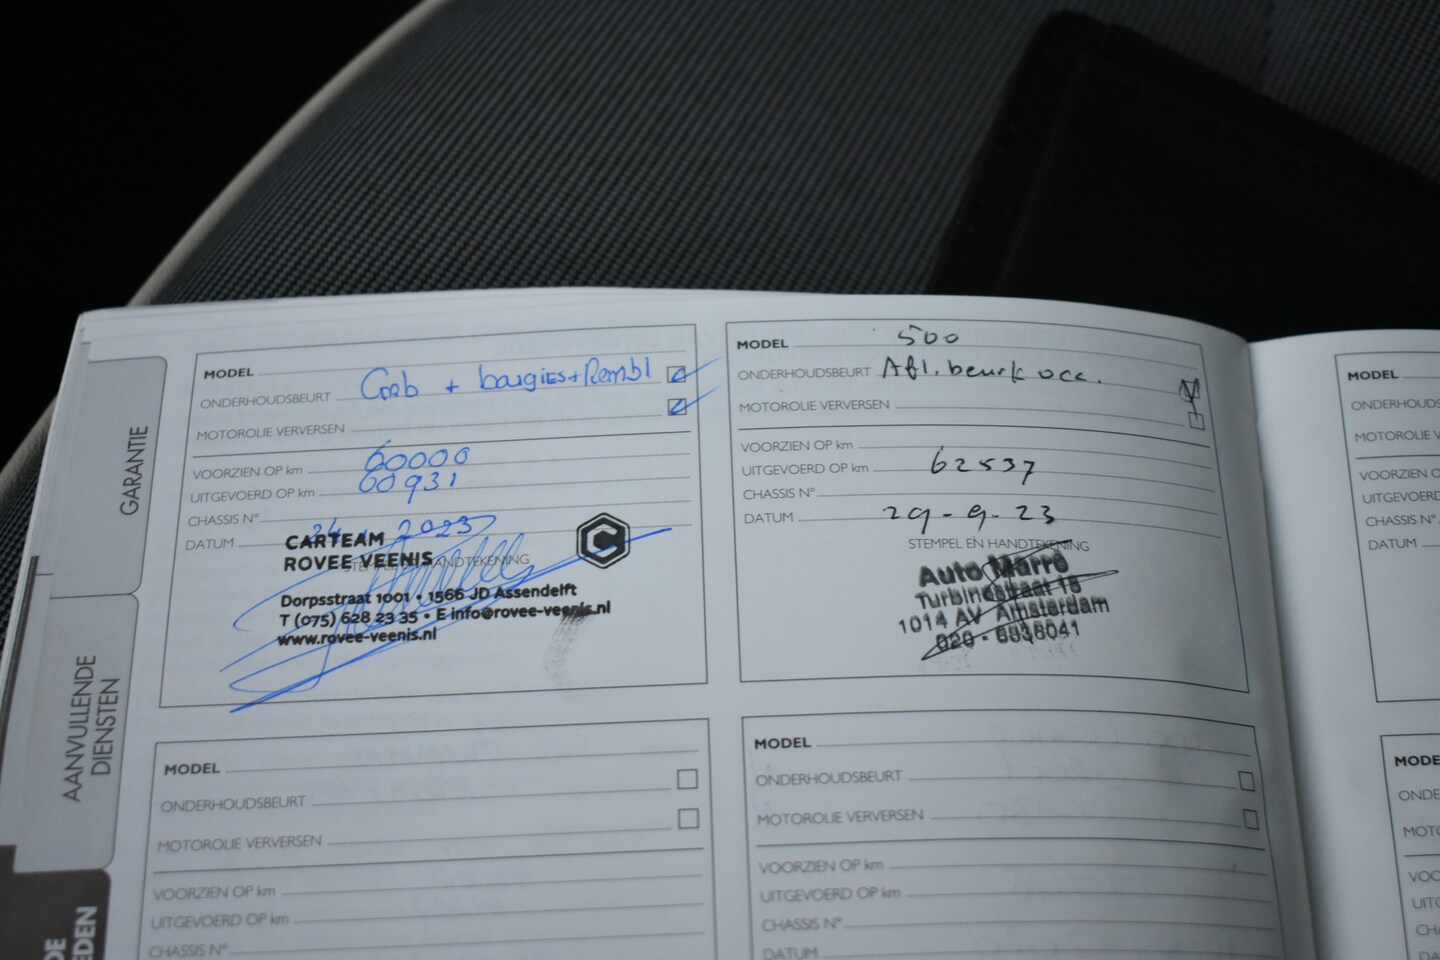 GARANTIE
AANVULLENDE
DIENSTEN
DE
EDEN
MODEL
ONDERHOUDSBEURT GRB + bougies + Rembl
MOTOROLIE VERVERSEN
VOORZIEN OP km 60000
UITGEVOERD OP km 60931
CHASSIS N°
DATUM 2023
STEMPEL EN HANDTEKENING
CARTEAM
ROVEE VEENIS
Dorpsstraat 1001 • 1566 JD Assendelft
T (075) 628 23 35 • E info@rovee-veenis.nl
www.rovee-veenis.nl
MODEL 500
ONDERHOUDSBEURT Afl. beurt occ.
MOTOROLIE VERVERSEN
VOORZIEN OP km
UITGEVOERD OP km 62537
CHASSIS N°
DATUM 29-9-23
STEMPEL EN HANDTEKENING
Auto Marro
Turbinestraat 18
1014 AV Amsterdam
020 - 6838041
MODEL
ONDERHOUDSBEURT
MOTOROLIE VERVERSEN
VOORZIEN OP km
UITGEVOERD OP km
CHASSIS N°
MODEL
ONDERHOUDSBEURT
MOTOROLIE VERVERSEN
VOORZIEN OP km
UITGEVOERD OP km
CHASSIS N°
DATUM
MODEL
ONDERHOUDS
MOTOROLIE V
VOORZIEN OP
UITGEVOERD
CHASSIS N°
DATUM
MODE
ONDE
MOTO
VOO
UITG
CHA
DA